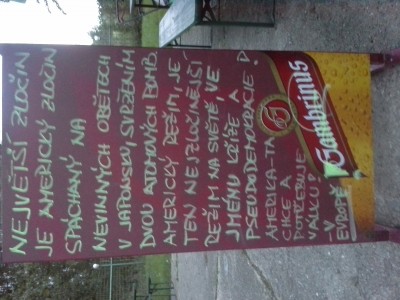 NEJVĚTŠÍ ZLOČIN
JE AMERICKÝ ZLOČIN
SPÁCHANÝ NA
NEVINNÝCH OBĚTECH
V JAPONSKU, SVRŽENÍM
DVOU ATOMOVÝCH BOMB,
AMERICKÝ REŽIM, JE
TEN NEJZLOČINĚJŠÍ
REŽIM NA SVĚTĚ, VE
JMÉNU KŘÍŽE A
PSEUDODEMOKRACIE!
AMERIKA-TA
CHCE A
POTŘEBUJE
VÁLKU
- V
EVROPĚ
Gambrinus